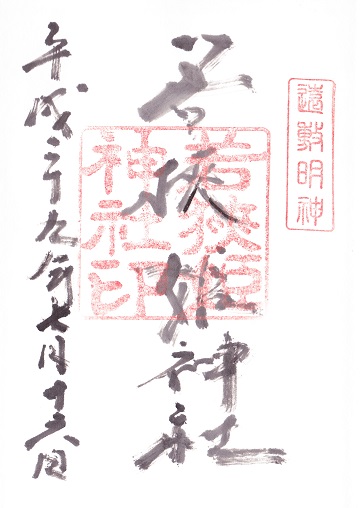 遠敷明神
若狭姫神社
若狭姫神社印
平成二十九年七月十六日